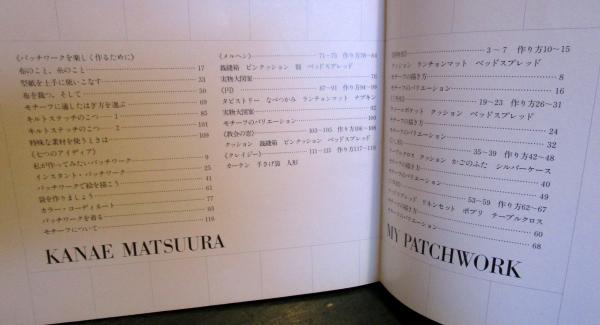 《パッチワークを楽しく作るために》
布のこと、糸のこと 17
型紙を上手に使いこなす 33
布を裁つ、そして 50
モチーフに適したはぎ方を選ぶ 69
キルトステッチのこつ 1 85
キルトステッチのこつ 2 101
特殊な素材を使うときは 108
《七つのアイディア》
私が作ってみたいパッチワーク 9
インスタント・パッチワーク 25
パッチワークで絵を描こう 41
袋を作りましょう 61
カラー・コーディネート 77
パッチワークを着る 93
モチーフについて 116
《メルヘン》 71~75 作り方78~84
裁縫箱 ピンクッション 額 ベッドスプレッド
実物大図案 76
《円》 87~91 作り方94~99
タピストリー なべつかみ ランチョンマット ナプキン
実物大図案 92
モチーフのバリエーション 100
《教会の窓》 103~105 作り方106~108
クッション 裁縫箱 ピンクッション ベッドスプレッド
《クレイジー》 111~113 作り方117~119
カーテン 手さげ袋 人形
KANAE MATSUURA
3~7 作り方10~15
クッション ランチョンマット ベッドスプレッド
モチーフの描き方 8
モチーフのバリエーション 16
19~23 作り方26~31
ウォールポケット クッション ベッドスプレッド
モチーフの描き方 24
モチーフのバリエーション 32
35~39 作り方42~48
クッション かごのふた シルバーケース
モチーフの描き方 40
モチーフのバリエーション 49
53~59 作り方62~67
リネンセット ポプリ テーブルクロス
モチーフの描き方 60
モチーフのバリエーション 68
MY PATCHWORK